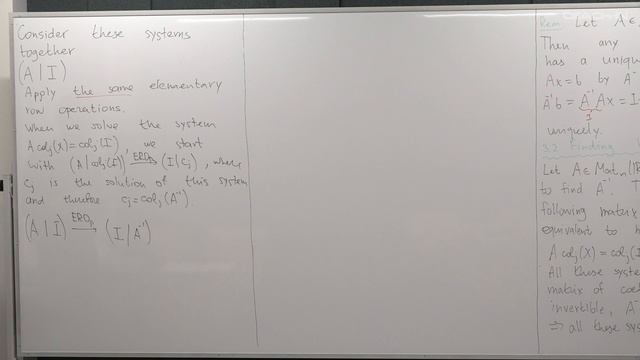 Consider these systems
together
(A | I)
Apply the same elementary
row operations.
When we solve the system
A colj(X) = colj(I) we start
with (A | colj(I)) ERO→ (I | Cj), where
Cj is the solution of this system
and therefore Cj = colj(A⁻¹).
(A | I) ERO→ (I | A⁻¹)
Rem Let A ∈
Then any
has a uniqu
Ax = b by A⁻
A⁻¹b = A⁻¹Ax = I
I
uniquely.
3.2 Finding
Let A ∈ Matn(IR
to find A⁻¹. T
following matrix
equivalent to
A colj(X) = colj(I
All these system
matrix of coef
invertible, A⁻
⇒ all these sys